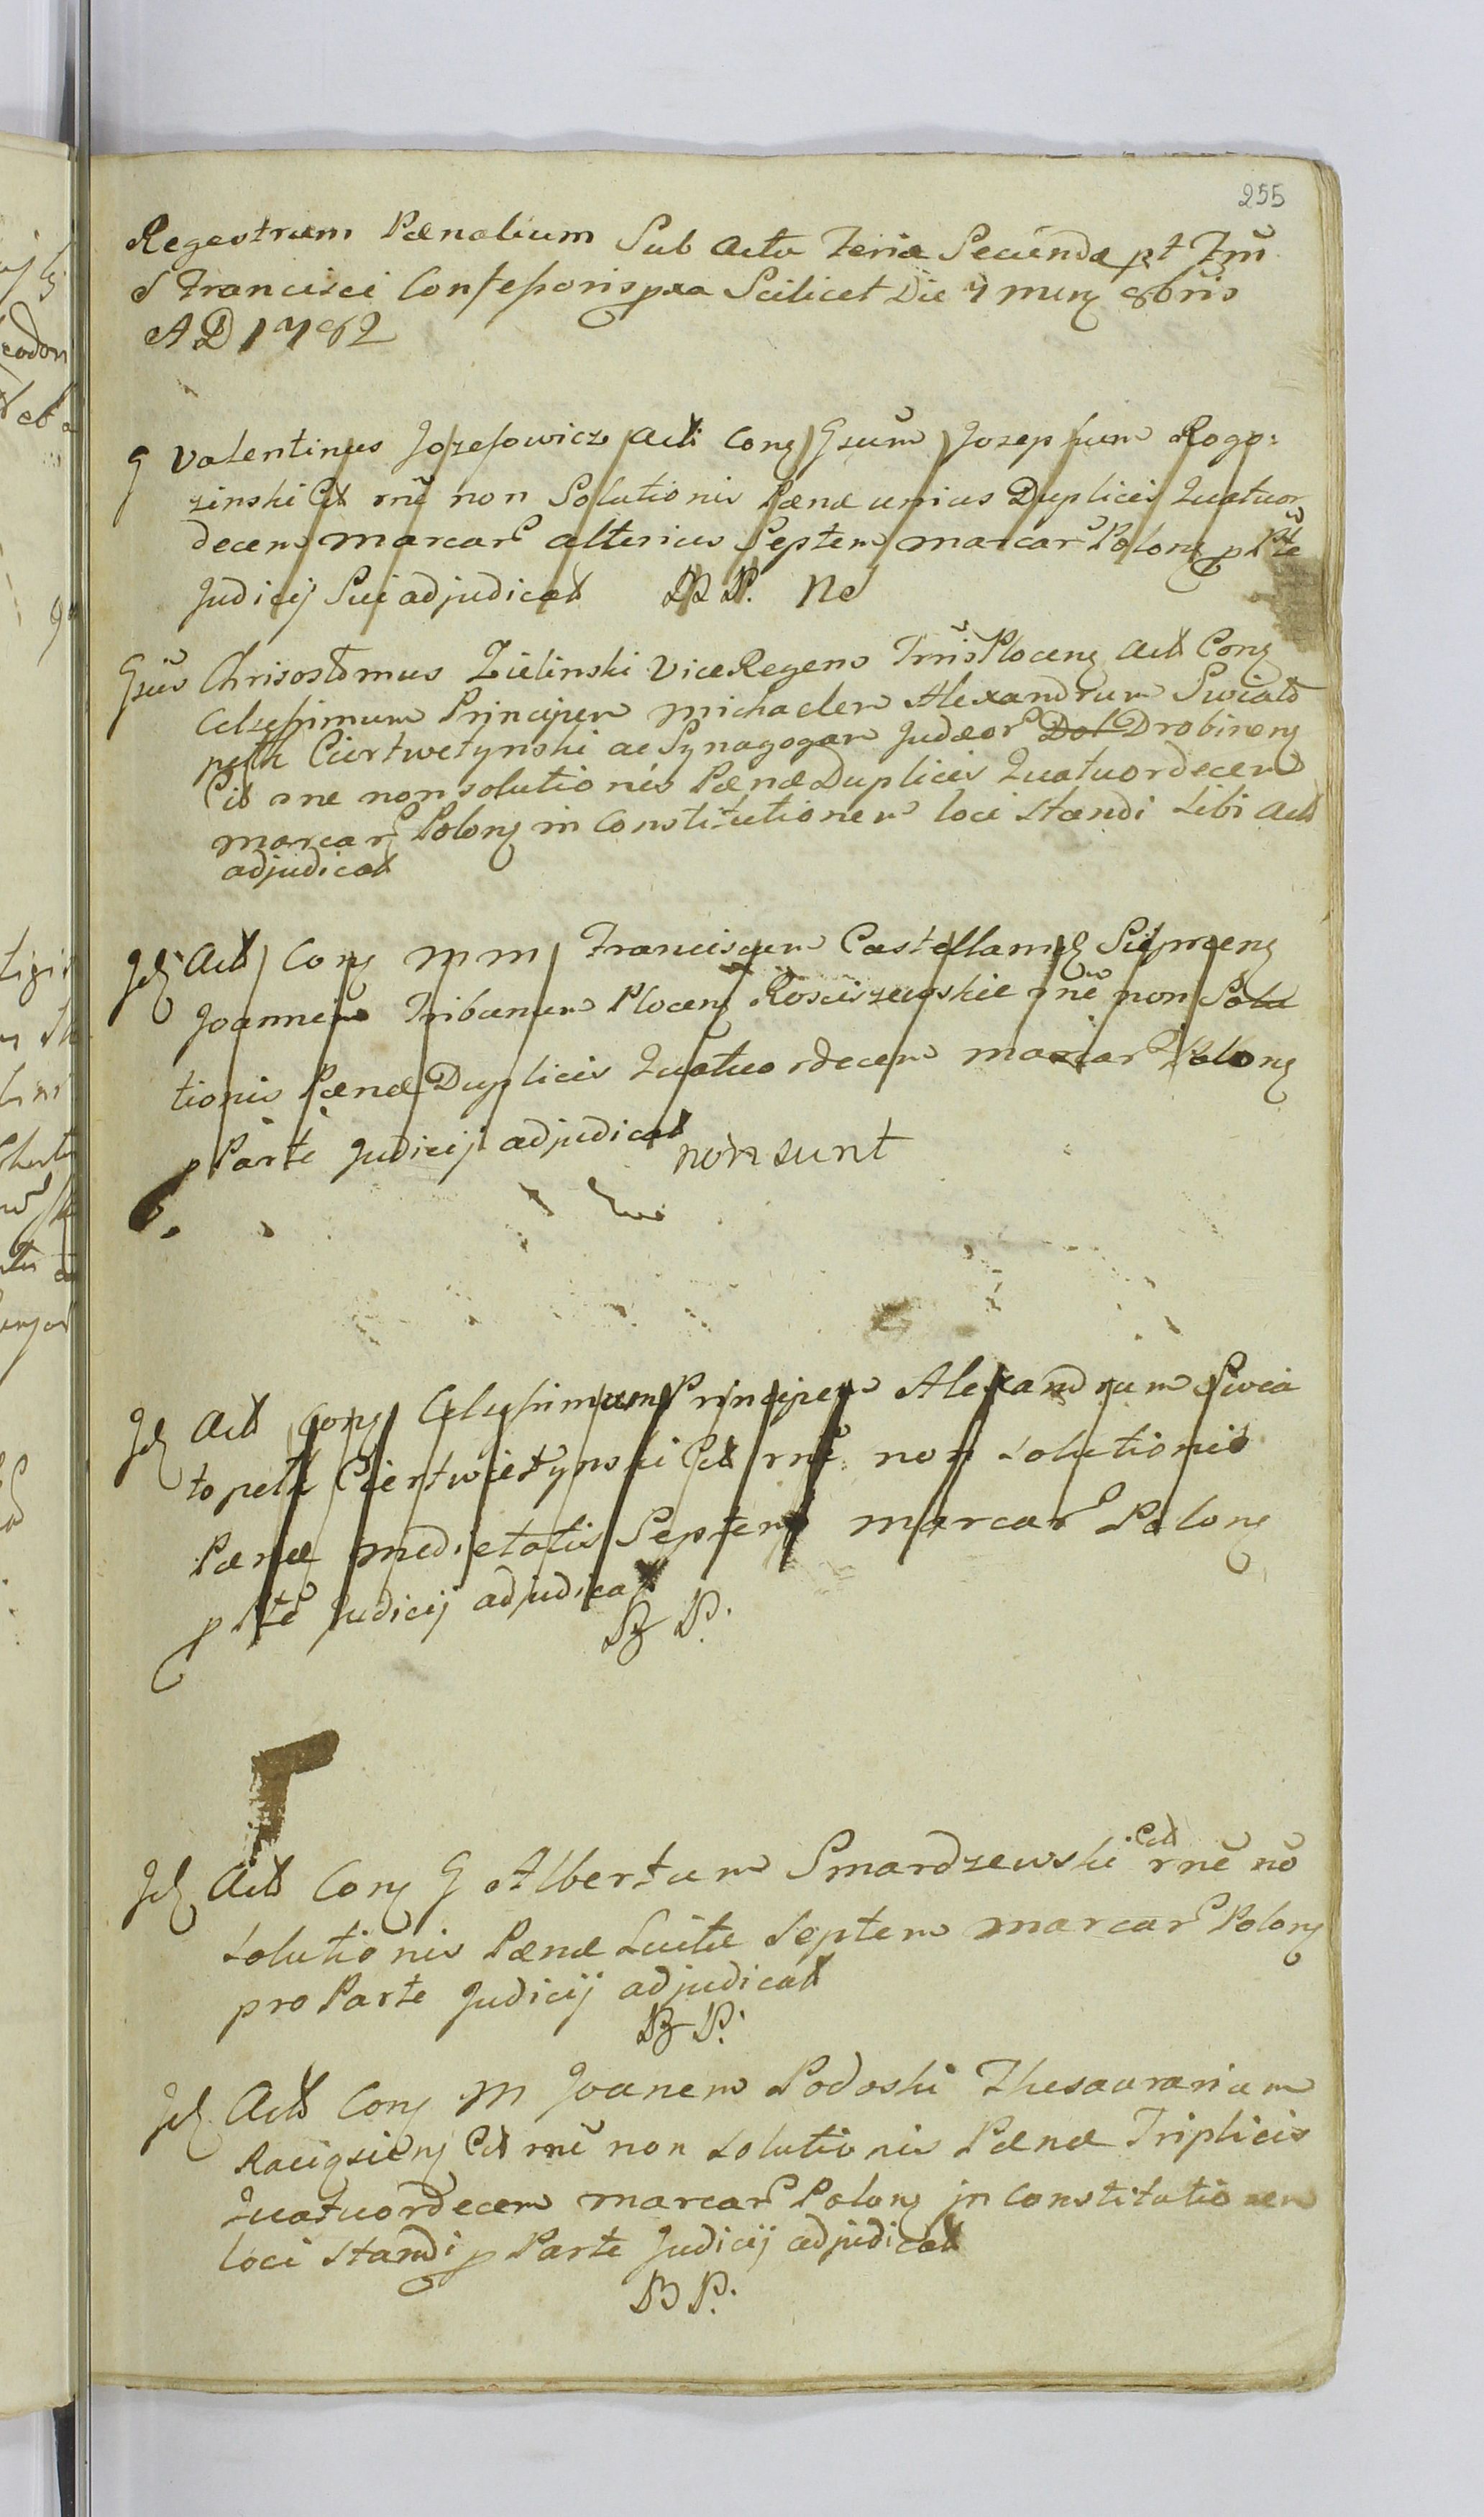 255
Regestrum Pænalium Sub Actu Feriæ Secundæ pt Fm̄
S Francisci Confessoris pxa Scilicet Die 7 mens 8bris
A D 1782
G Valentinus Jozefowicz Act Conq Gsum Josephum Rogo:
zinski Cit rnē non Solutionis Pænæ unius Duplicis Quatuor
decem marcar alterius Septem marcar Polonq p Pte
Judicij Sui adjudicat B P. Nd
Gsus Chrisostomus Zielinski Vice Regens Trris Plocenq Act Conq
Celssimum Principem Michaelem Alexandrum Swiato
pełk Czertwetynski ac Synagogam Judæor Dol Drobinenq
Cit rne non solutionis Pænæ Duplicis Quatuordecem
marcarq Polonq in Constitutionem loci standi sibi Act
adjudicat
Jd Act Conq M M Franciscum Castellanuq Sieprcenq
Joannem Tribunum Plocenq Rosciszewskie rnē non Solu
tionis Pænæ Duplicis Quatuordecem marcar Polonq
p Parte Judicij adjudicat
non sunt
Jd Act Conq Celssimum Principem Alexandrum Swia
topełk Czertwietynski Cit rnē non solutionis
Pænæ medietatis Septem marcar Polonq
p Ptē Judicij adjudicat
B P.
Jd Act Conq G Albertum Smardzewski Cit rnē nō
solutionis Pænæ Luitæ Septem marcar Polonq
pro Parte Judicij adjudicat
B P.
Jd Act Conq M Joanem Podoski Thesaurarium
Raciąsienq Cit rnē non solutionis Pænæ Triplicis
Quatuordecem marcar Polonq in Constitutionem
loci standi p Parte Judicij adjudicat
B P.